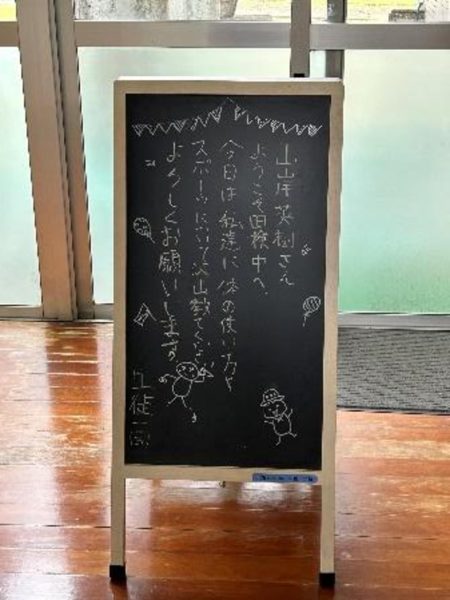 山岸英樹さん
ようこそ田検中へ。
今日は私達に体の使い方や
スポーツについて沢山教えてください
よろしくお願いします。
生徒一同